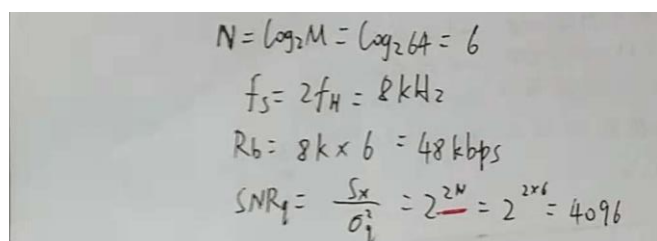 N = log₂M = log₂64 = 6
fs = 2fH = 8kHz
Rb = 8k × 6 = 48kbps
SNRq = Sx/σq² = 2^2N = 2^2×6 = 4096